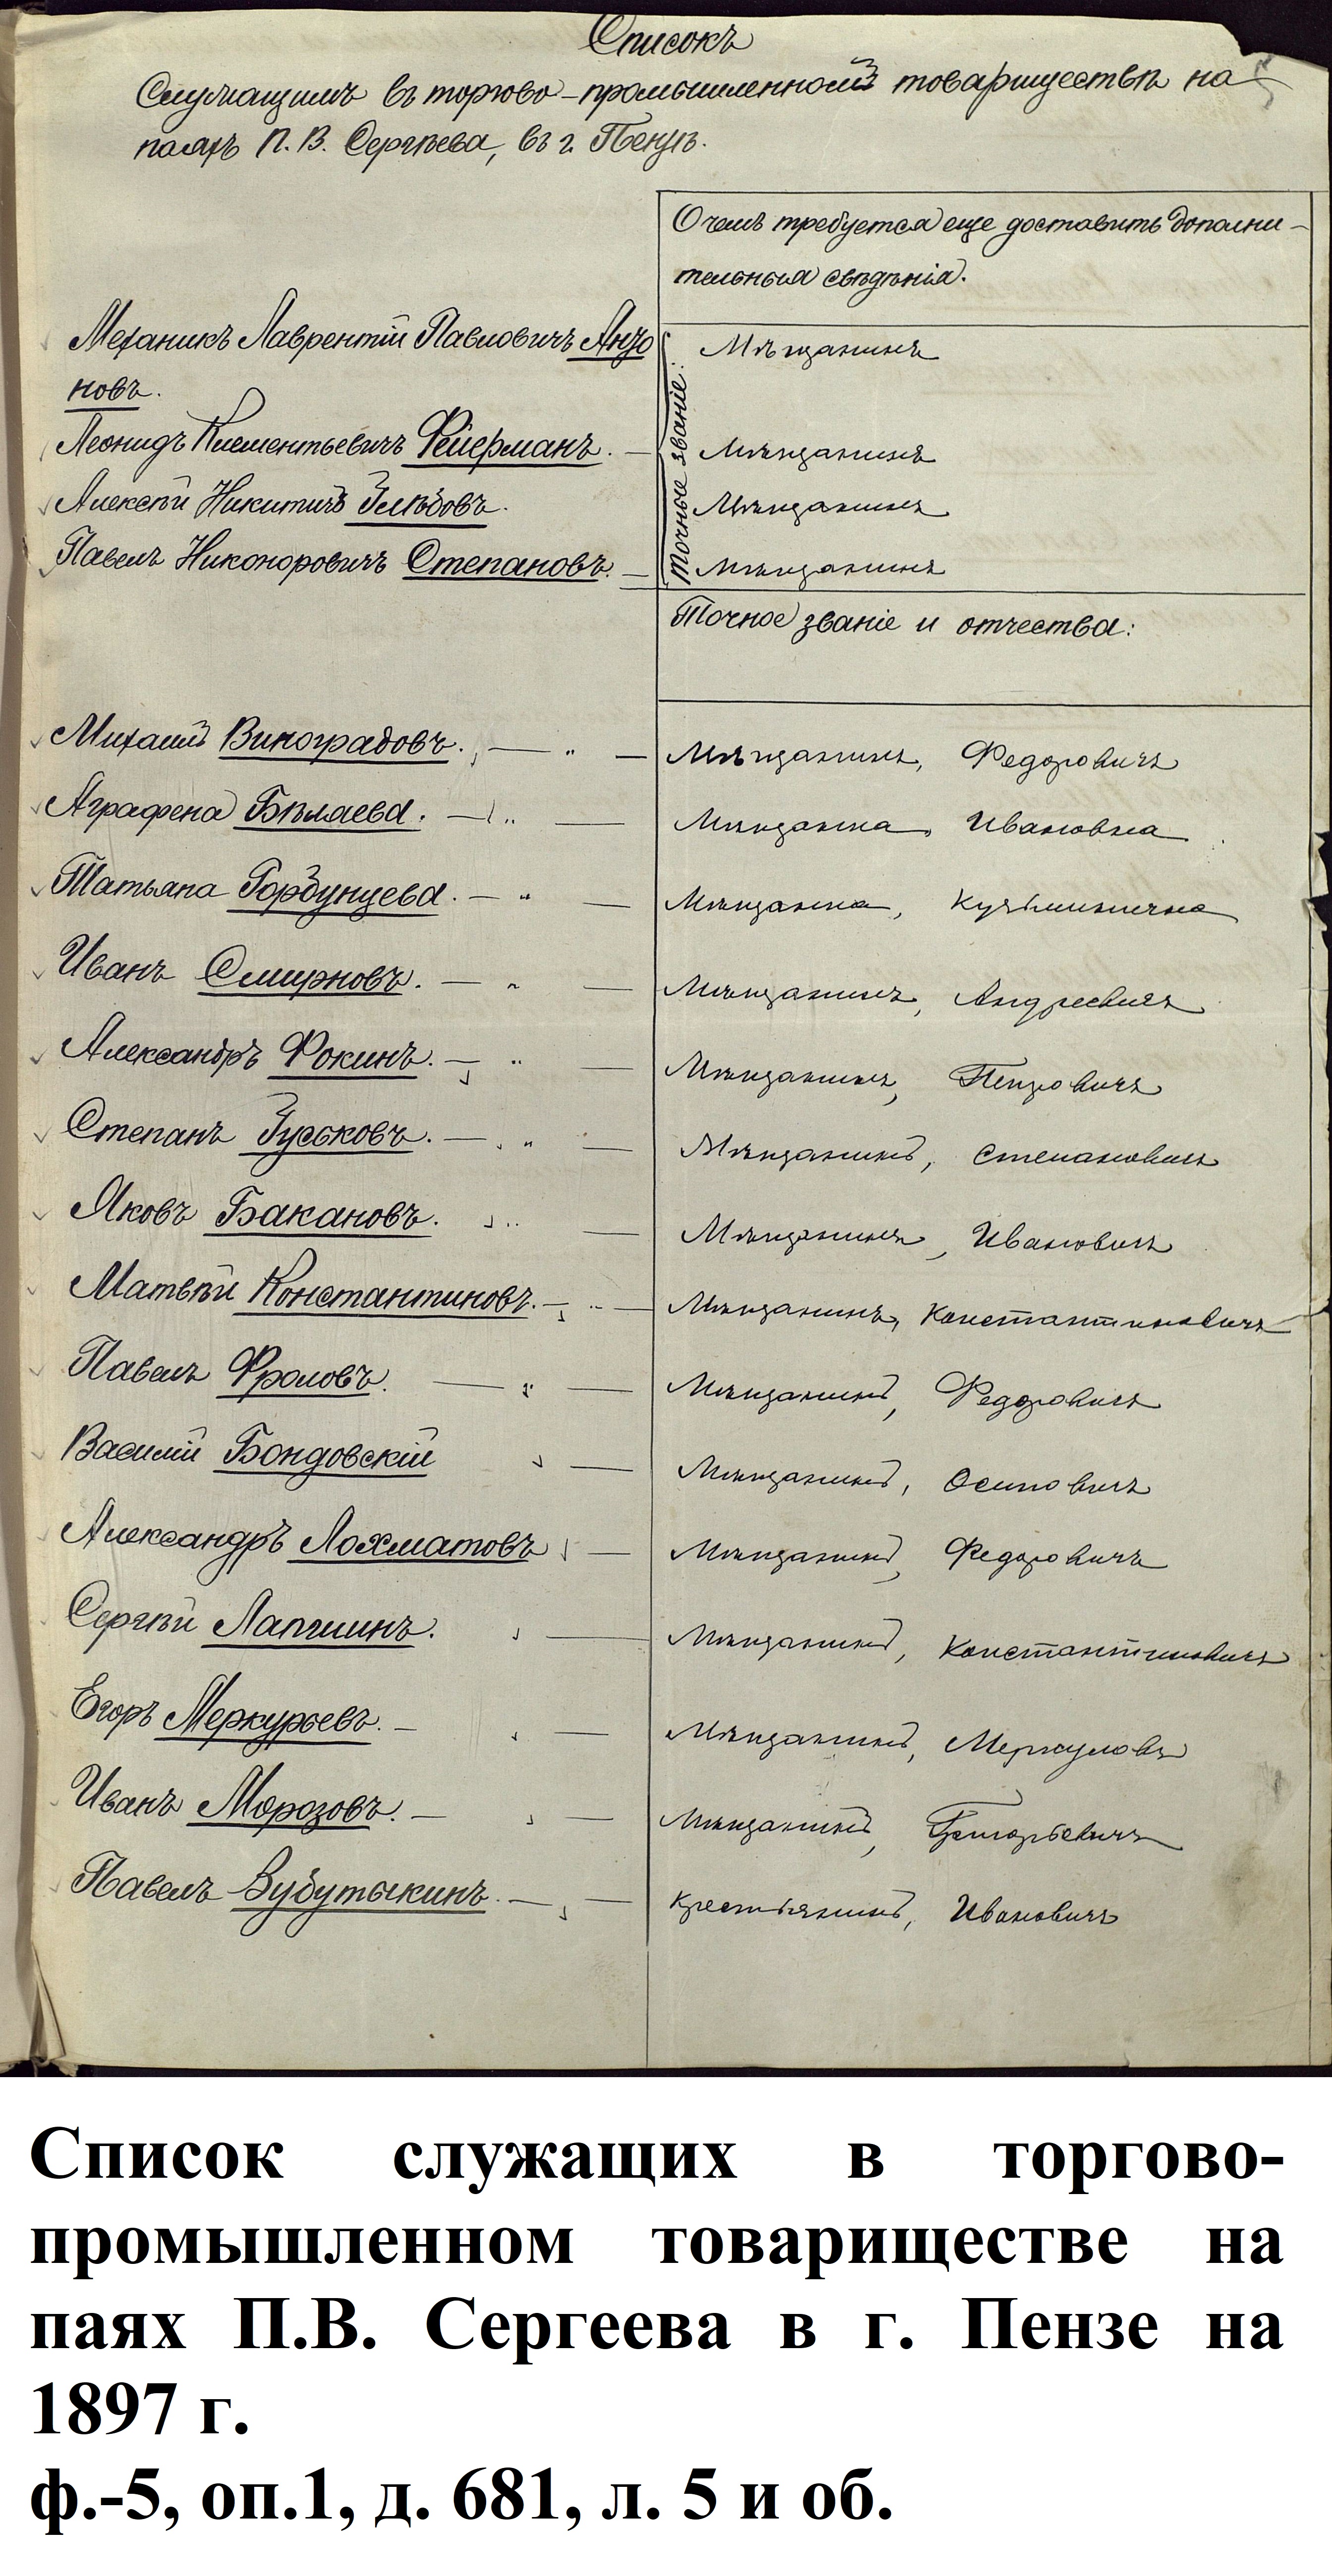 Списокъ
Служащимъ въ торгово-промышленномъ товариществѣ на
паяхъ П. В. Сергѣева, въ г. Пензѣ.
О чемъ требуется еще доставить дополни-
тельныя свѣдѣнія.
Точные званіе:
Механикъ Лаврентій Павловичъ Мѣщанинъ
новъ.
Леонидъ Клементьевичъ Фейерманъ. — Мѣщанинъ
Алексѣй Никитичъ Глѣбовъ. Мѣщанинъ
Павелъ Никоноровичъ Степановъ. — Мѣщанинъ
Точное званіе и отчества:
Михаилъ Виноградовъ. — „ — Мѣщанинъ, Федоровичъ
Аграфена Бѣляева. — „ — Мѣщанка, Ивановна
Татьяна Горбунцева. — „ — Мѣщанка, Кузьминична
Иванъ Смирновъ. — „ — Мѣщанинъ, Андреевичъ
Александръ Фокинъ. — „ — Мѣщанинъ, Петровичъ
Степанъ Гуськовъ. — „ — Мѣщанинъ, Степановичъ
Яковъ Бакановъ. „ — Мѣщанинъ, Ивановичъ
Матвѣй Константиновъ. — „ — Мѣщанинъ, Константиновичъ
Павелъ Фроловъ. — „ — Мѣщанинъ, Федоровичъ
Василій Бондовскій — Мѣщанинъ, Осиповичъ
Александръ Лохматовъ — Мѣщанинъ, Федоровичъ
Сергѣй Лапшинъ. — Мѣщанинъ, Константиновичъ
Егоръ Меркурьевъ. — — Мѣщанинъ, Меркуловъ
Иванъ Морозовъ. — — Мѣщанинъ, Григорьевичъ
Павелъ — — Крестьянинъ, Ивановичъ
Список служащих в торгово-
промышленном товариществе на
паях П.В. Сергеева в г. Пензе на
1897 г.
ф.-5, оп.1, д. 681, л. 5 и об.